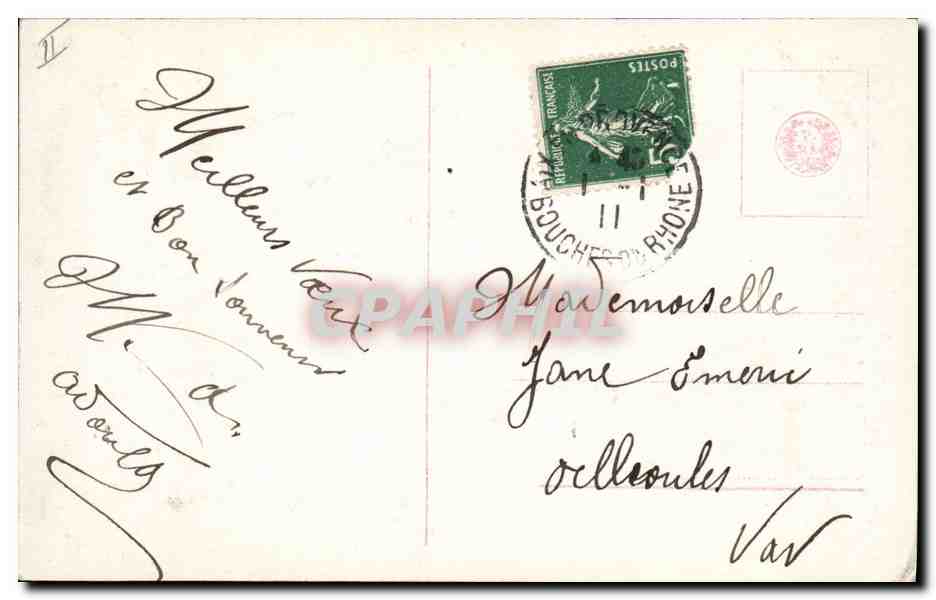 II
Meilleurs Vœux
et Bon Souvenir
M.
RÉPUBLIQUE FRANÇAISE
POSTES
5
1 - 1
11
BOUCHES DU RHONE
CPAPHIL
Mademoiselle
Jane Emeri
ollioules
Var